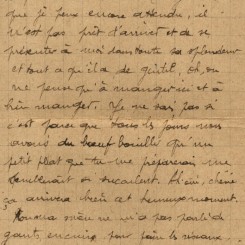 que je peux encore attendre, il
n'est pas prêt d'arriver et de se
présenter à moi dans toute sa splendeur
et tout ce qu'il a de Oh, on
ne pense qu'à manger ici et à
bien manger. Je ne sais pas si
c'est parce que tous les jours nous
avons du bœuf bouilli qu'un
petit plat que tu me préparerais me
semblerait si succulent. chérie
ça arrivera bien cet heureux moment.
Maman même ne m'a pas parlé de
gants encore pour